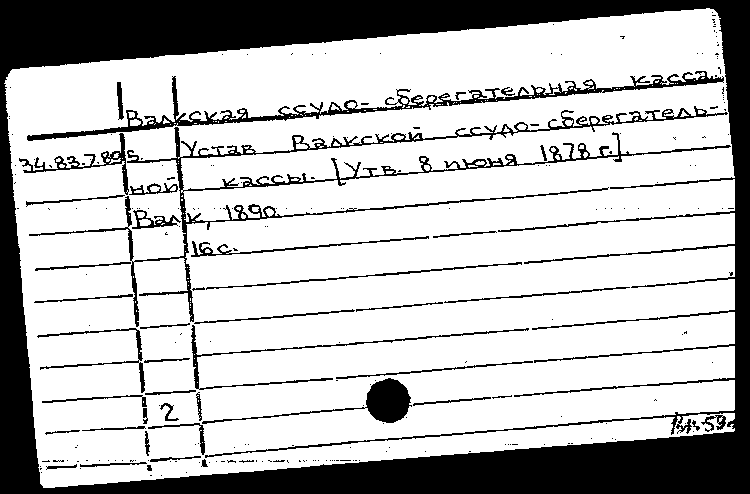 Валкская ссудо-сберегательная касса.
34.83.7.89 Устав Валкской ссудо-сберегатель-
ной кассы. [Утв. 8 июня 1878 г.].
Валк, 1890.
16 с.
2